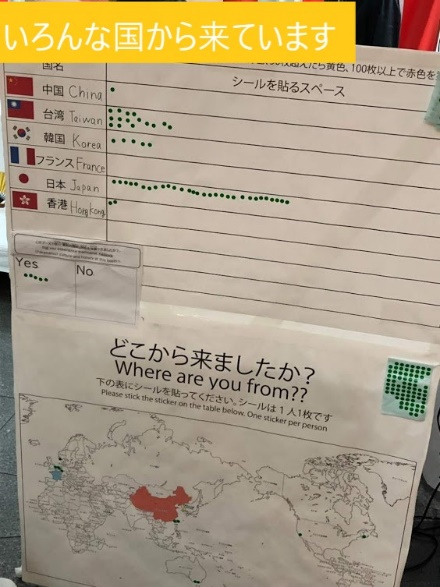 いろんな国から来ています
国名
100枚以上で赤色を
シールを貼るスペース
中国 China
台湾 Taiwan
韓国 Korea
フランス France
日本 Japan
香港 Hongkong
Yes No
どこから来ましたか？
Where are you from??
下の表にシールを貼ってください。シールは１人1枚です
Please stick the sticker on the table below. One sticker per person